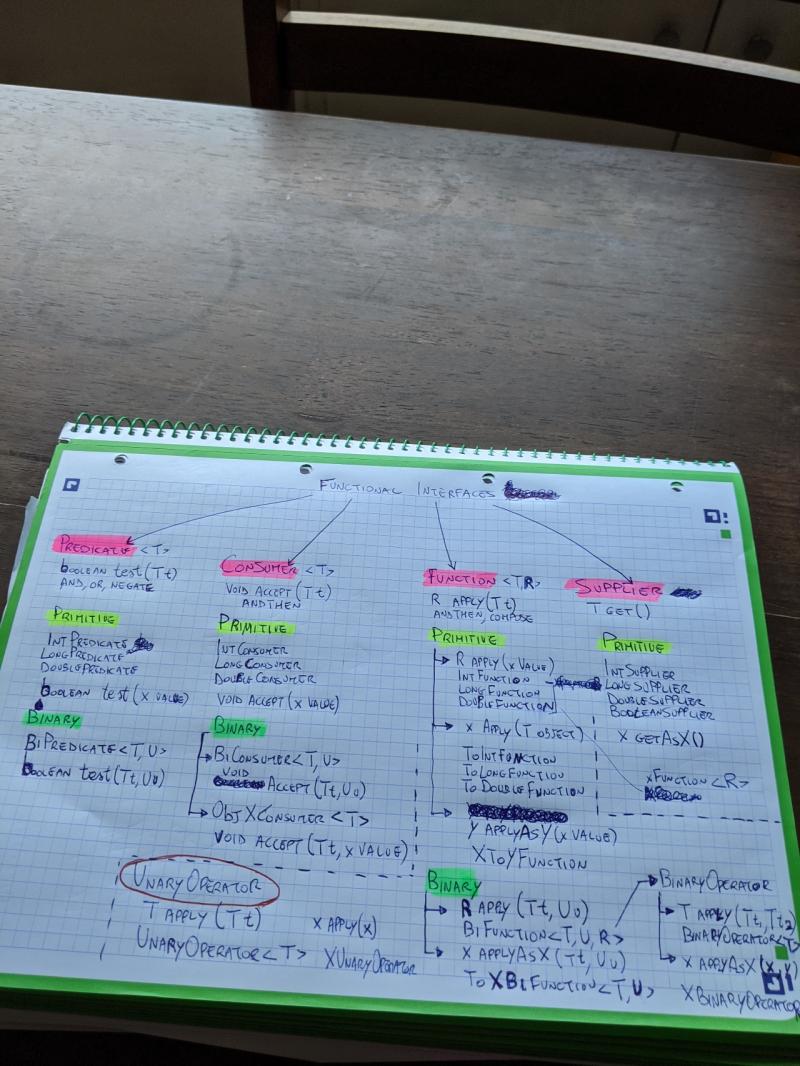 FUNCTIONAL INTERFACES
PREDICATE <T>
boolean test(T t)
AND, OR, NEGATE
PRIMITIVE
INTPREDICATE
LONGPREDICATE
DOUBLEPREDICATE
boolean test (x VALUE)
BINARY
BIPREDICATE<T,U>
Boolean test(T t, U u)
CONSUMER <T>
VOID ACCEPT(T t)
ANDTHEN
PRIMITIVE
INTCONSUMER
LONGCONSUMER
DOUBLECONSUMER
VOID ACCEPT(x VALUE)
BINARY
BICONSUMER<T,U>
VOID
ACCEPT(T t, U u)
OBJXCONSUMER <T>
VOID ACCEPT (T t, x VALUE)
FUNCTION <T,R>
R APPLY(T t)
ANDTHEN, COMPOSE
PRIMITIVE
R APPLY(x VALUE)
INTFUNCTION
LONGFUNCTION
DOUBLEFUNCTION
xFUNCTION<R>
x APPLY(T OBJECT)
TOINTFUNCTION
TOLONGFUNCTION
TO DOUBLEFUNCTION
Y APPLYASY(x VALUE)
XTOYFUNCTION
BINARY
R APPLY (T t, U u)
BIFUNCTION<T,U,R>
X APPLYASX (T t, U u)
TO XBIFUNCTION<T,U>
SUPPLIER
T GET()
PRIMITIVE
INTSUPPLIER
LONGSUPPLIER
DOUBLESUPPLIER
BOOLEANSUPPLIER
X GETASX()
BINARYOPERATOR
T APPLY(T t1, T t2)
BINARYOPERATOR<T>
X APPLYASX (x, y)
XBINARYOPERATOR
UNARYOPERATOR
T APPLY (T t)
UNARYOPERATOR<T>
X APPLY(x)
XUNARYOPERATOR